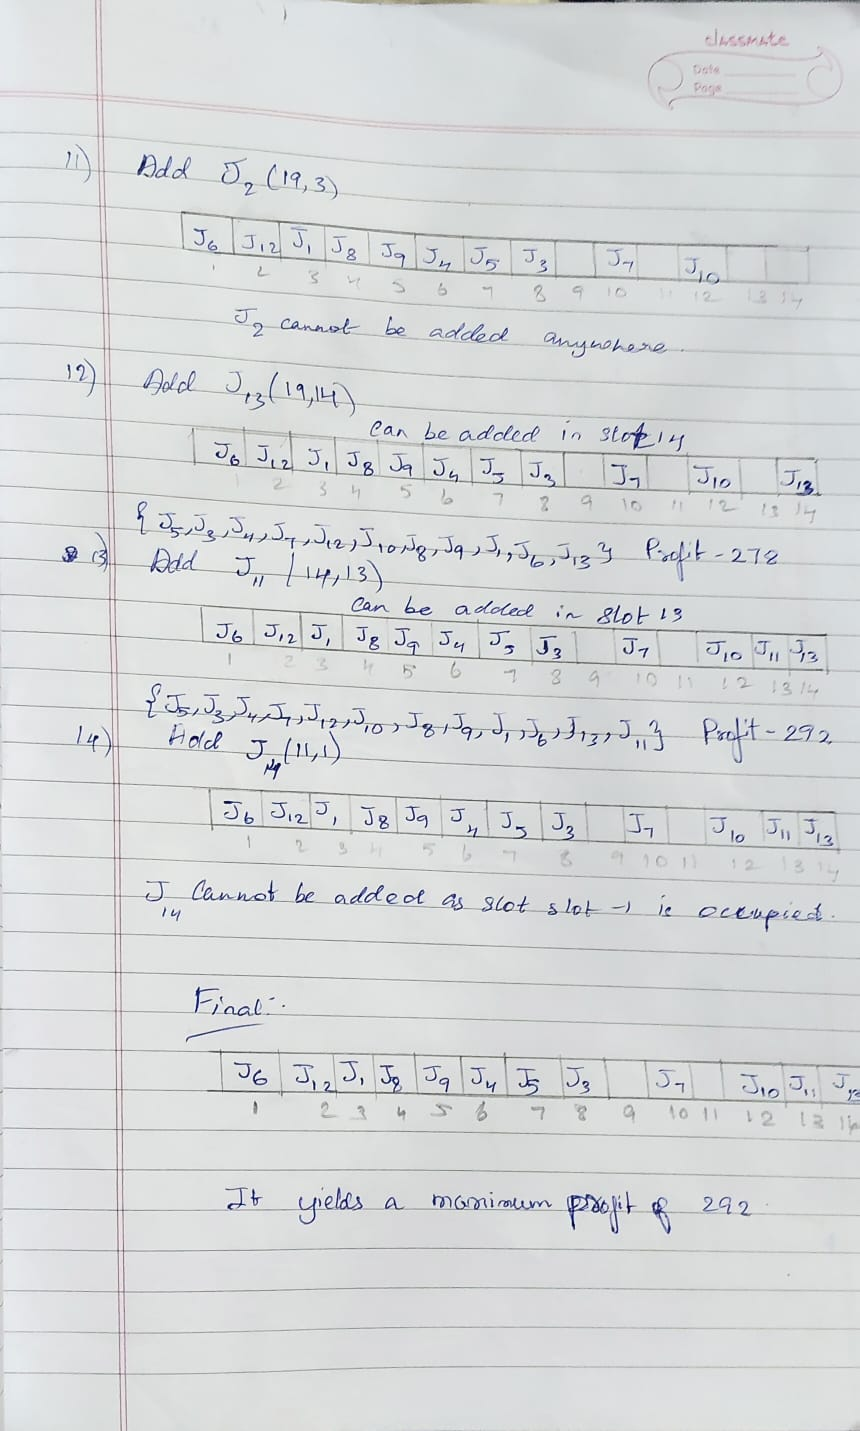 classmate
Date
Page
11) Add J2 (19,3)
J6 J12 J1 J8 J9 J4 J5 J3 J7 J10
1 2 3 4 5 6 7 8 9 10 11 12 13 14
J2 cannot be added anywhere.
12) Add J13 (19,14)
can be added in slot 14
J6 J12 J1 J8 J9 J4 J5 J3 J7 J10 J13
1 2 3 4 5 6 7 8 9 10 11 12 13 14
{ J5, J3, J4, J7, J12, J10, J8, J9, J1, J6, J13 } Profit - 278
13) Add J11 (14,13)
can be added in slot 13
J6 J12 J1 J8 J9 J4 J5 J3 J7 J10 J11 J13
1 2 3 4 5 6 7 8 9 10 11 12 13 14
{ J5, J3, J4, J7, J12, J10, J8, J9, J1, J6, J13, J11 } Profit - 292
14) Add J14 (11,1)
J6 J12 J1 J8 J9 J4 J5 J3 J7 J10 J11 J13
1 2 3 4 5 6 7 8 9 10 11 12 13 14
J14 Cannot be added as slot slot -1 is occupied.
Final:-
J6 J12 J1 J8 J9 J4 J5 J3 J7 J10 J11 J13
1 2 3 4 5 6 7 8 9 10 11 12 13 14
It yields a maximum profit of 292